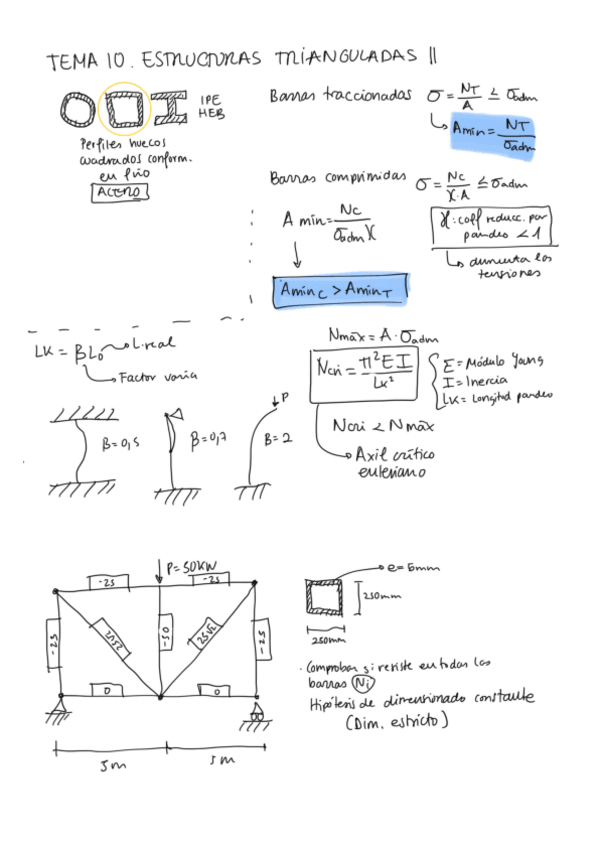 TEMA 10. ESTRUCTURAS TRIANGULADAS II
IPE
HEB
Perfiles huecos
cuadrados conform.
en frío
ACERO
Barras traccionadas σ = NT/A ≤ σadm
Amin = NT/σadm
Barras comprimidas σ = Nc/χ·A ≤ σadm
A min = Nc/σadm χ
χ: coff reducc. por
pandeo < 1
aumenta las
tensiones
AminC > AminT
LK = βL0
L. real
Factor varia
β=0,5
β=0,7
β=2
P
Nmáx = A · σadm
Ncri = π²EI/LK²
E = Módulo Young
I = Inercia
LK = Longitud pandeo
Ncri < Nmáx
Axil crítico
euleriano
P=50KN
-25
-25
-25
25√2
-50
25√2
-25
0
0
5m
5m
e= 5mm
250mm
250mm
· Comprobar si resiste en todas las
barras Ni
Hipótesis de dimensionado constante
(Dim. estricto)